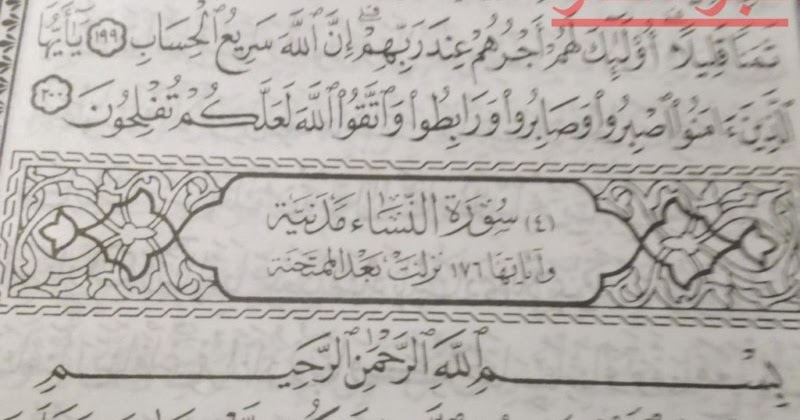 ثَمَنًا قَلِيلًا أُو۟لَـٰٓئِكَ لَهُمْ أَجْرُهُمْ عِندَ رَبِّهِمْ إِنَّ ٱللَّهَ سَرِيعُ ٱلْحِسَابِ ١٩٩ يَـٰٓأَيُّهَا
ٱلَّذِينَ ءَامَنُوا۟ ٱصْبِرُوا۟ وَصَابِرُوا۟ وَرَابِطُوا۟ وَٱتَّقُوا۟ ٱللَّهَ لَعَلَّكُمْ تُفْلِحُونَ ٢٠٠
(٤) سُورَة النِّسَاء مَدَنِيَة
وَآيَاتِهَا ١٧٦ نَزَلَتْ بَعْدَ الْمُمْتَحَنَة
بِسْمِ ٱللَّهِ ٱلرَّحْمَـٰنِ ٱلرَّحِيمِ